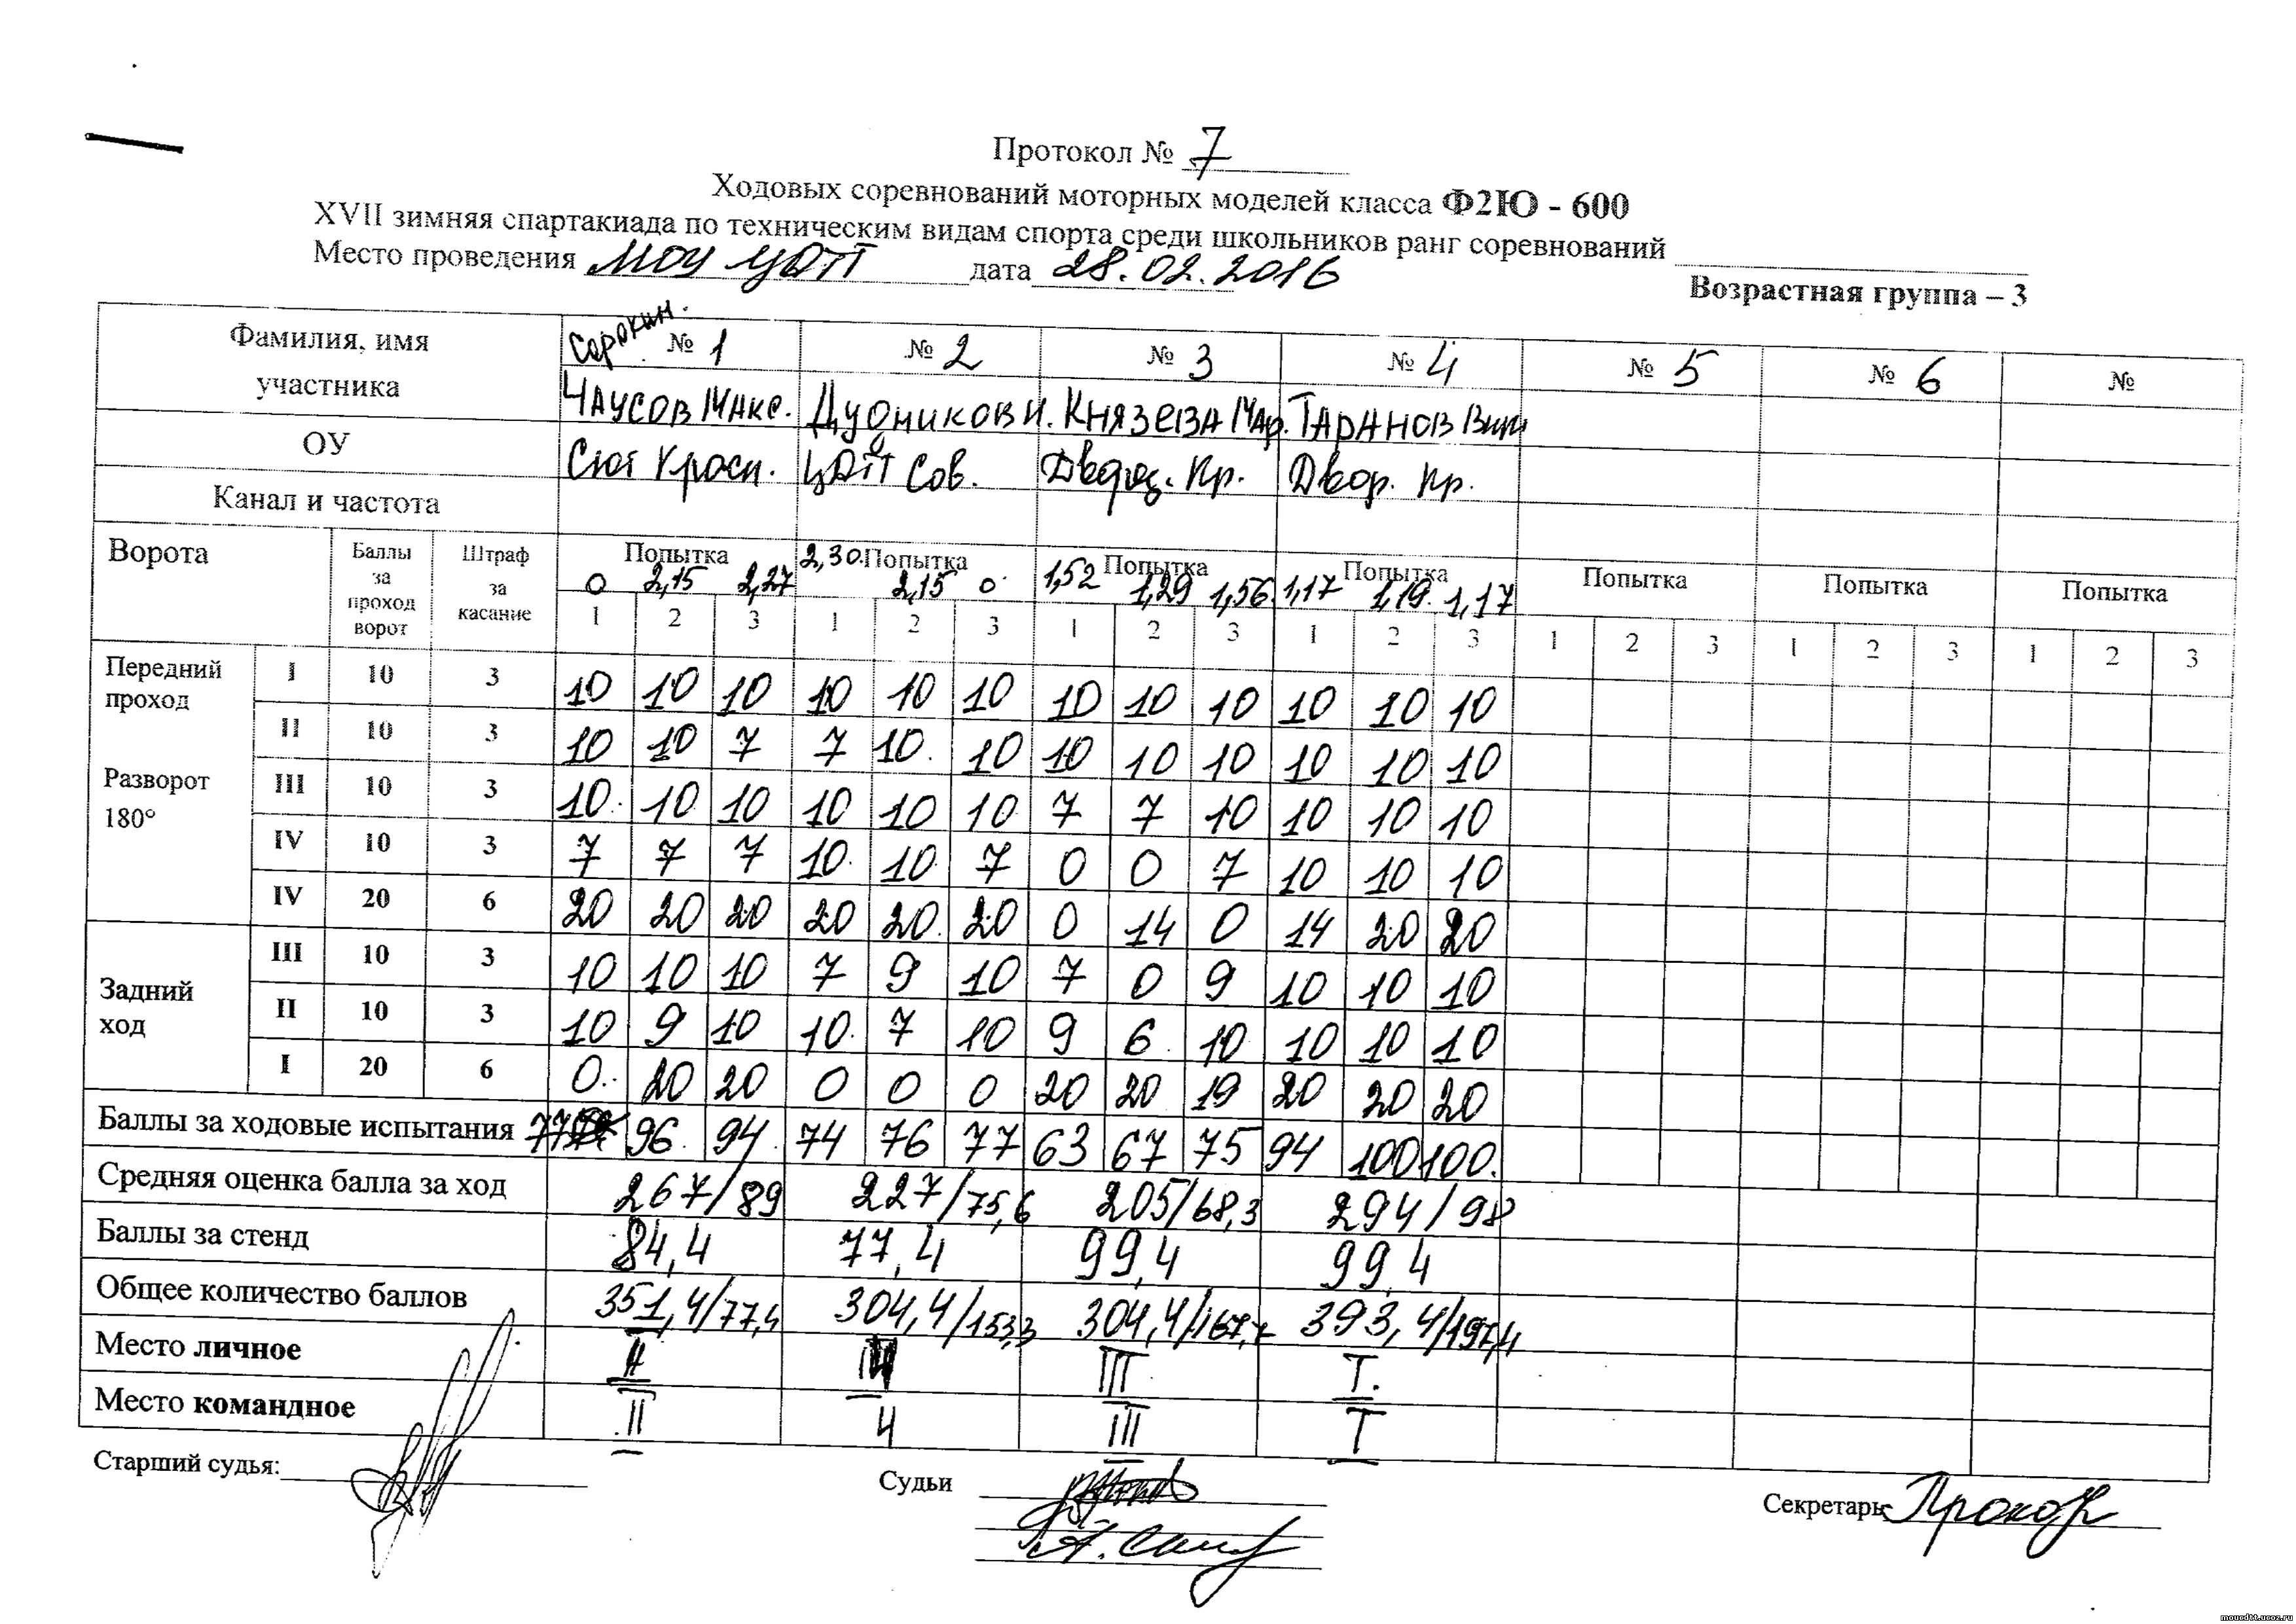 Протокол № 7
Ходовых соревнований моторных моделей класса Ф2Ю - 600
XVII зимняя спартакиада по техническим видам спорта среди школьников ранг соревнований
Место проведения МОУ ЦДТТ дата 28.02.2016
Возрастная группа – 3
Фамилия, имя участника Сорокин. № 1 № 2 № 3 № 4 № 5 № 6 №
Чаусов Макс. Дудников И. Князева Мар. Таранов
ОУ Сют Красн. ЦДТТ Сов. Дворец. Кр. Двор. Кр.
Канал и частота
Ворота Баллы за проход ворот Штраф за касание Попытка Попытка Попытка Попытка Попытка Попытка Попытка
0 2,15 2,27 2,30 2,15 0 1,52 1,29 1,56 1,17 1,19 1,17
1 2 3 1 2 3 1 2 3 1 2 3 1 2 3 1 2 3 1 2 3
Передний проход I 10 3 10 10 10 10 10 10 10 10 10 10 10 10
II 10 3 10 10 7 7 10 10 10 10 10 10 10 10
Разворот 180° III 10 3 10 10 10 10 10 10 7 7 10 10 10 10
IV 10 3 7 7 7 10 10 7 0 0 7 10 10 10
IV 20 6 20 20 20 20 20 20 0 14 0 14 20 20
Задний ход III 10 3 10 10 10 7 9 10 7 0 9 10 10 10
II 10 3 10 9 10 10 7 10 9 6 10 10 10 10
I 20 6 0 20 20 0 0 0 20 20 19 20 20 20
Баллы за ходовые испытания 77 96 94 74 76 77 63 67 75 94 100 100
Средняя оценка балла за ход 267/89 227/75,6 205/68,3 294/98
Баллы за стенд 84,4 77,4 99,4 99,4
Общее количество баллов 351,4/77,4 304,4/153,3 304,4/167,7 393,4/197,4
Место личное II III I
Место командное II 4 III I
Старший судья:
Судьи
Секретарь
mouedtt.ucoz.ru